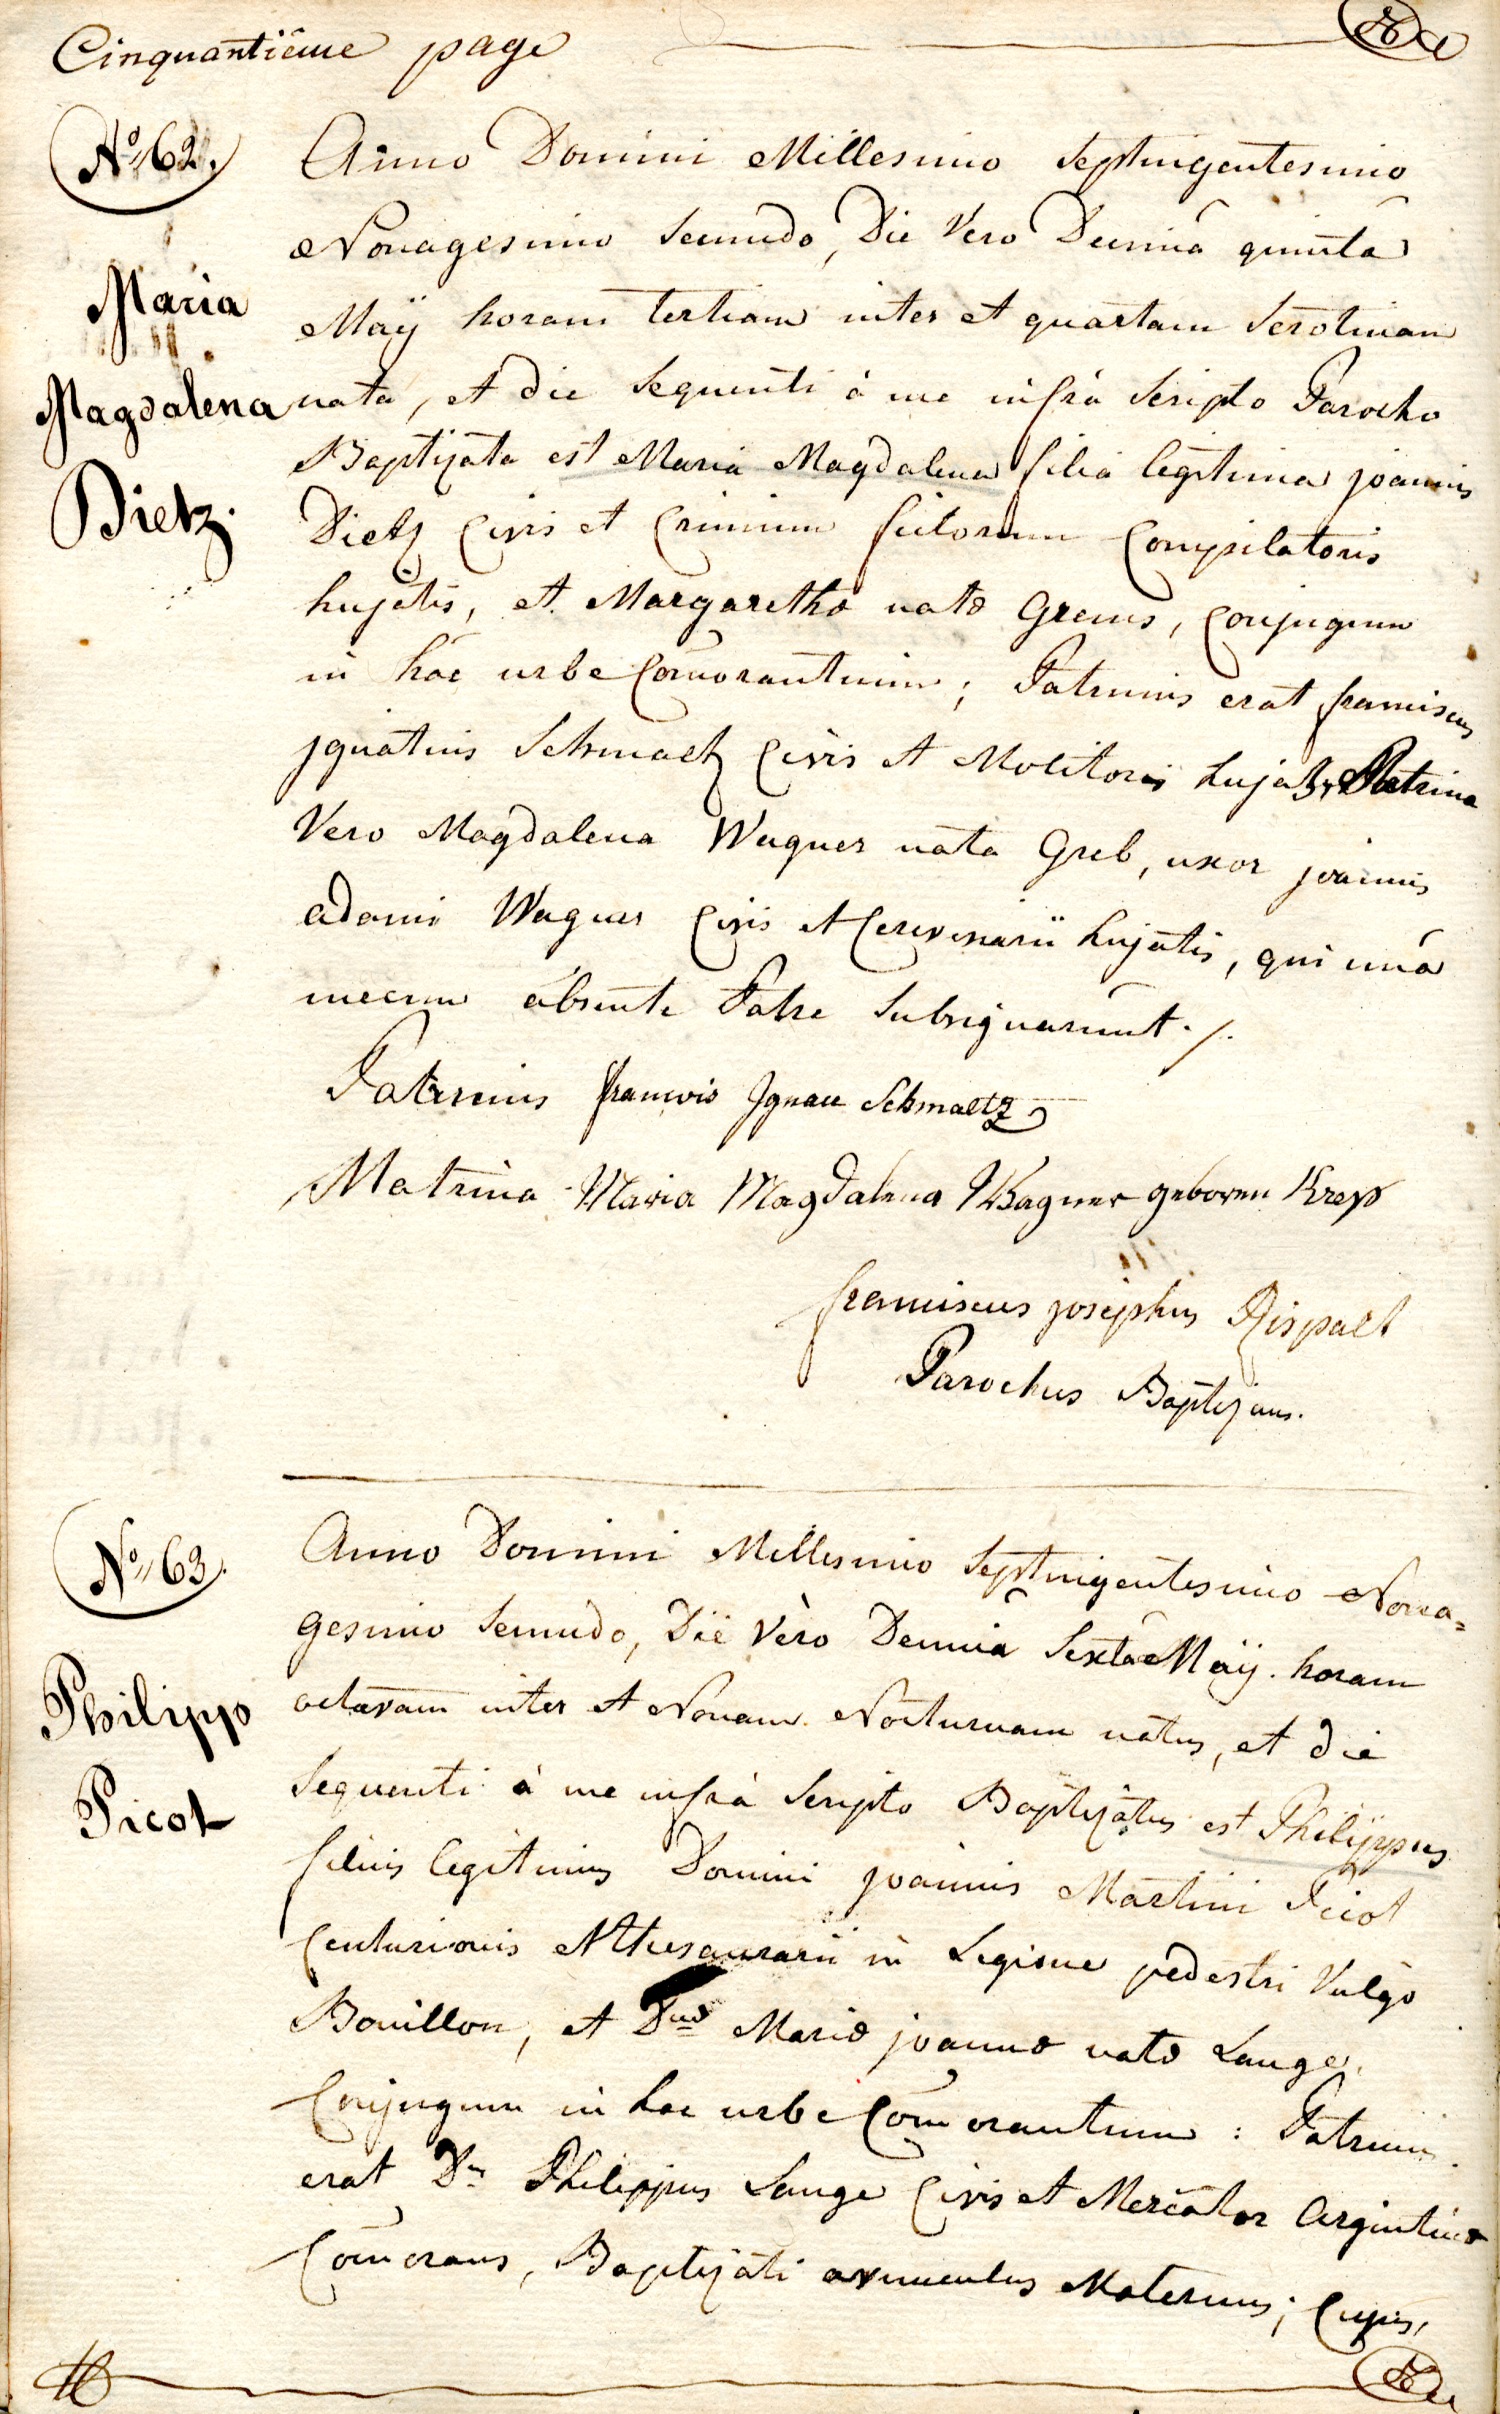 Cinquantiême page
No 62.
Maria
Magdalena
Dietz.
Anno Domini Millesimo Septingentesimo
Nonagesimo Secundo, Die Vero Decimâ quintâ
Maÿ horam tertiam inter et quartam Serotinam
nata, et die Sequenti à me infrà Scripto Parocho
Baptizata est Maria Magdalena filia legitima joannis
Dietz Civis et Crinium fictorum Compilatoris
hujatis, et Margarethæ natæ Grenus, Conjugum
in hâc urbe Com̄orantium; Patrinus erat franciscus
jgnatius Schmaltz Civis et Molitoris hujatis, Matrina
Vero Magdalena Wagner nata Greb, uxor joannis
adami Wagner Civis et Cerevisiarii hujatis, qui unâ
mecum absente Patre Subsignarunt ./.
Patrinus francois Jgnace Schmaltz
Matrina Maria Magdalena Wagner geboren Kreps
franciscus josephus Rispalt
Parochus Baptizans.
No 63.
Philipp
Picot
Anno Domini Millesimo Septingentesimo Nona=
gesimo Secundo, Die Vero Decimâ Sextâ Maÿ. horam
octavam inter et Nonam Nocturnam natus, et die
Sequenti à me infrà Scripto Baptizatus est Philippus
filius legitimus Domini joannis Martini Picot
Centurionis et thesaurarii in Legione pedestri Vulgo
Bouillon, et Dnæ Mariæ joannæ natæ Lange,
Conjugum in hac urbe Com̄orantium: Patrinus
erat Dns Philippus Lange Civis et Mercator Argentinæ
Com̄orans, Baptizati avunculus Maternus; Cujus,